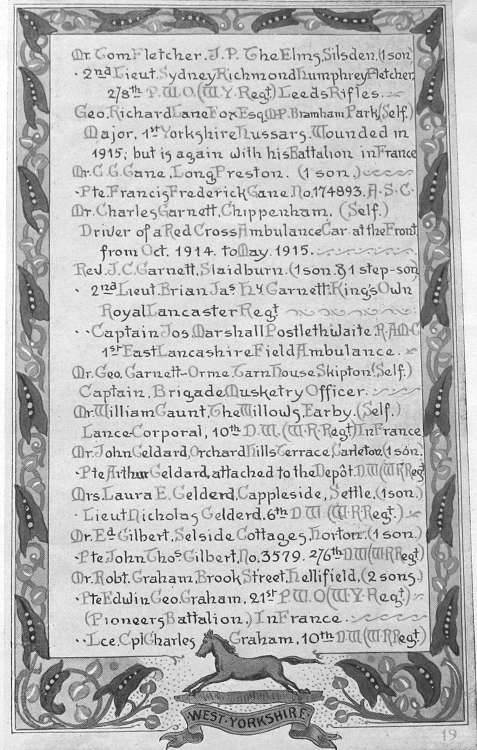 Mr. Tom Fletcher. J.P. The Elms, Silsden. (1 son)
· 2nd Lieut. Sydney Richmond Humphrey Fletcher,
2/8th P.W.O. (W.Y. Regt) Leeds Rifles.
Geo. Richard Lane Fox Esq. M.P. Bramham Park. (Self.)
Major, 1st Yorkshire Hussars. Wounded in
1915, but is again with his Battalion in France
Mr. C. G. Gane, Long Preston. (1 son.)
· Pte. Francis Frederick Gane. No. 174893. A.S.C.
Mr. Charles Garnett, Chippenham. (Self.)
Driver of a Red Cross Ambulance Car at the Front
from Oct. 1914. to May. 1915.
Rev. J. C. Garnett, Slaidburn. (1 son & 1 step-son
· 2nd Lieut. Brian Jas Hy Garnett. Kings Own
Royal Lancaster Regt
·· Captain Jos. Marshall Postlethwaite. R.A.M.C
1st East Lancashire Field Ambulance.
Mr. Geo. Garnett-Orme. Tarn House Skipton. (Self.)
Captain, Brigade Musketry Officer.
Mr William Gaunt, The Willows, Earby. (Self.)
Lance-Corporal, 10th D.W. (W.R. Regt) In France
Mr. John Geldard, Orchard Hills Terrace, Carleton. (1 son.
· Pte Arthur Geldard, attached to the Depôt. D.W (W.R. Regt)
Mrs Laura E. Gelderd, Cappleside, Settle. (1 son.)
· Lieut Nicholas Gelderd. 6th D.W (W.R. Regt.)
Mr. Ed Gilbert, Selside Cottages, Horton. (1 son.)
· Pte. John Thos. Gilbert, No. 3579. 2/6th D.W (W.R. Regt)
Mr. Robt. Graham, Brook Street, Hellifield. (2 sons.)
· Pte Edwin Geo. Graham, 21st P.W.O (W.Y. Regt)
(Pioneers Battalion.) In France.
·· Lce. Cpl Charles Graham, 10th D.W (W.R. Regt)
WEST·YORKSHIRE
19